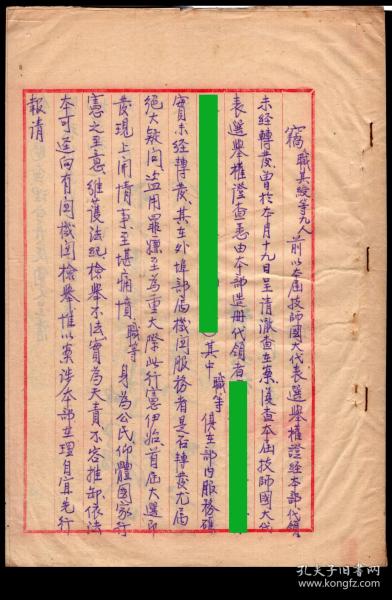 竊職其綏等九人前以本屆技師國大代表選舉權證經本部代領
未經轉發曾於本月十九日呈請澈查在案復查本屆技師國大代
表選舉權證查悉由本部造冊代領者
)其中職等俱在部內服務確
實未經轉發其在外埠部屬機關服務者是否轉發尤屬
絕大疑問盜用罪嫌至為重大際此行憲伊始首屆大選即
發現上開情事至堪痛憤職等身為公民仰體國家行
憲之至意維護法紀檢舉不法實為天責不容推卸依法
本可逕向有關機關檢舉惟以案涉本部在理自宜先行
報請
孔夫子旧书网
www.kongfz.com